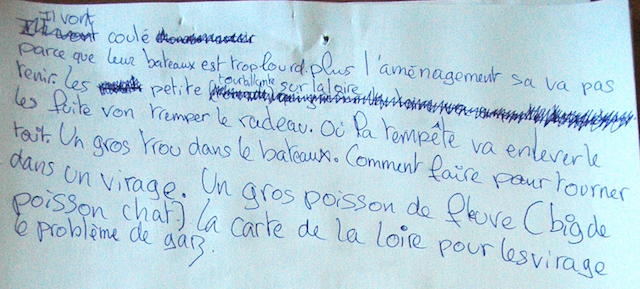 Il vont
coulé
parce que leur bateaux est trop lourd. plus l'aménagement sa va pas
tenir. les petite tourbillante sur la loire
les fuite von tremper le radeau. Où la tempête va enlever le
toit. Un gros trou dans le bateaux. Comment faire pour tourner
dans un virage. Un gros poisson de fleuve (big de
poisson chat) la carte de la loire pour les virage
le problème de gaz.